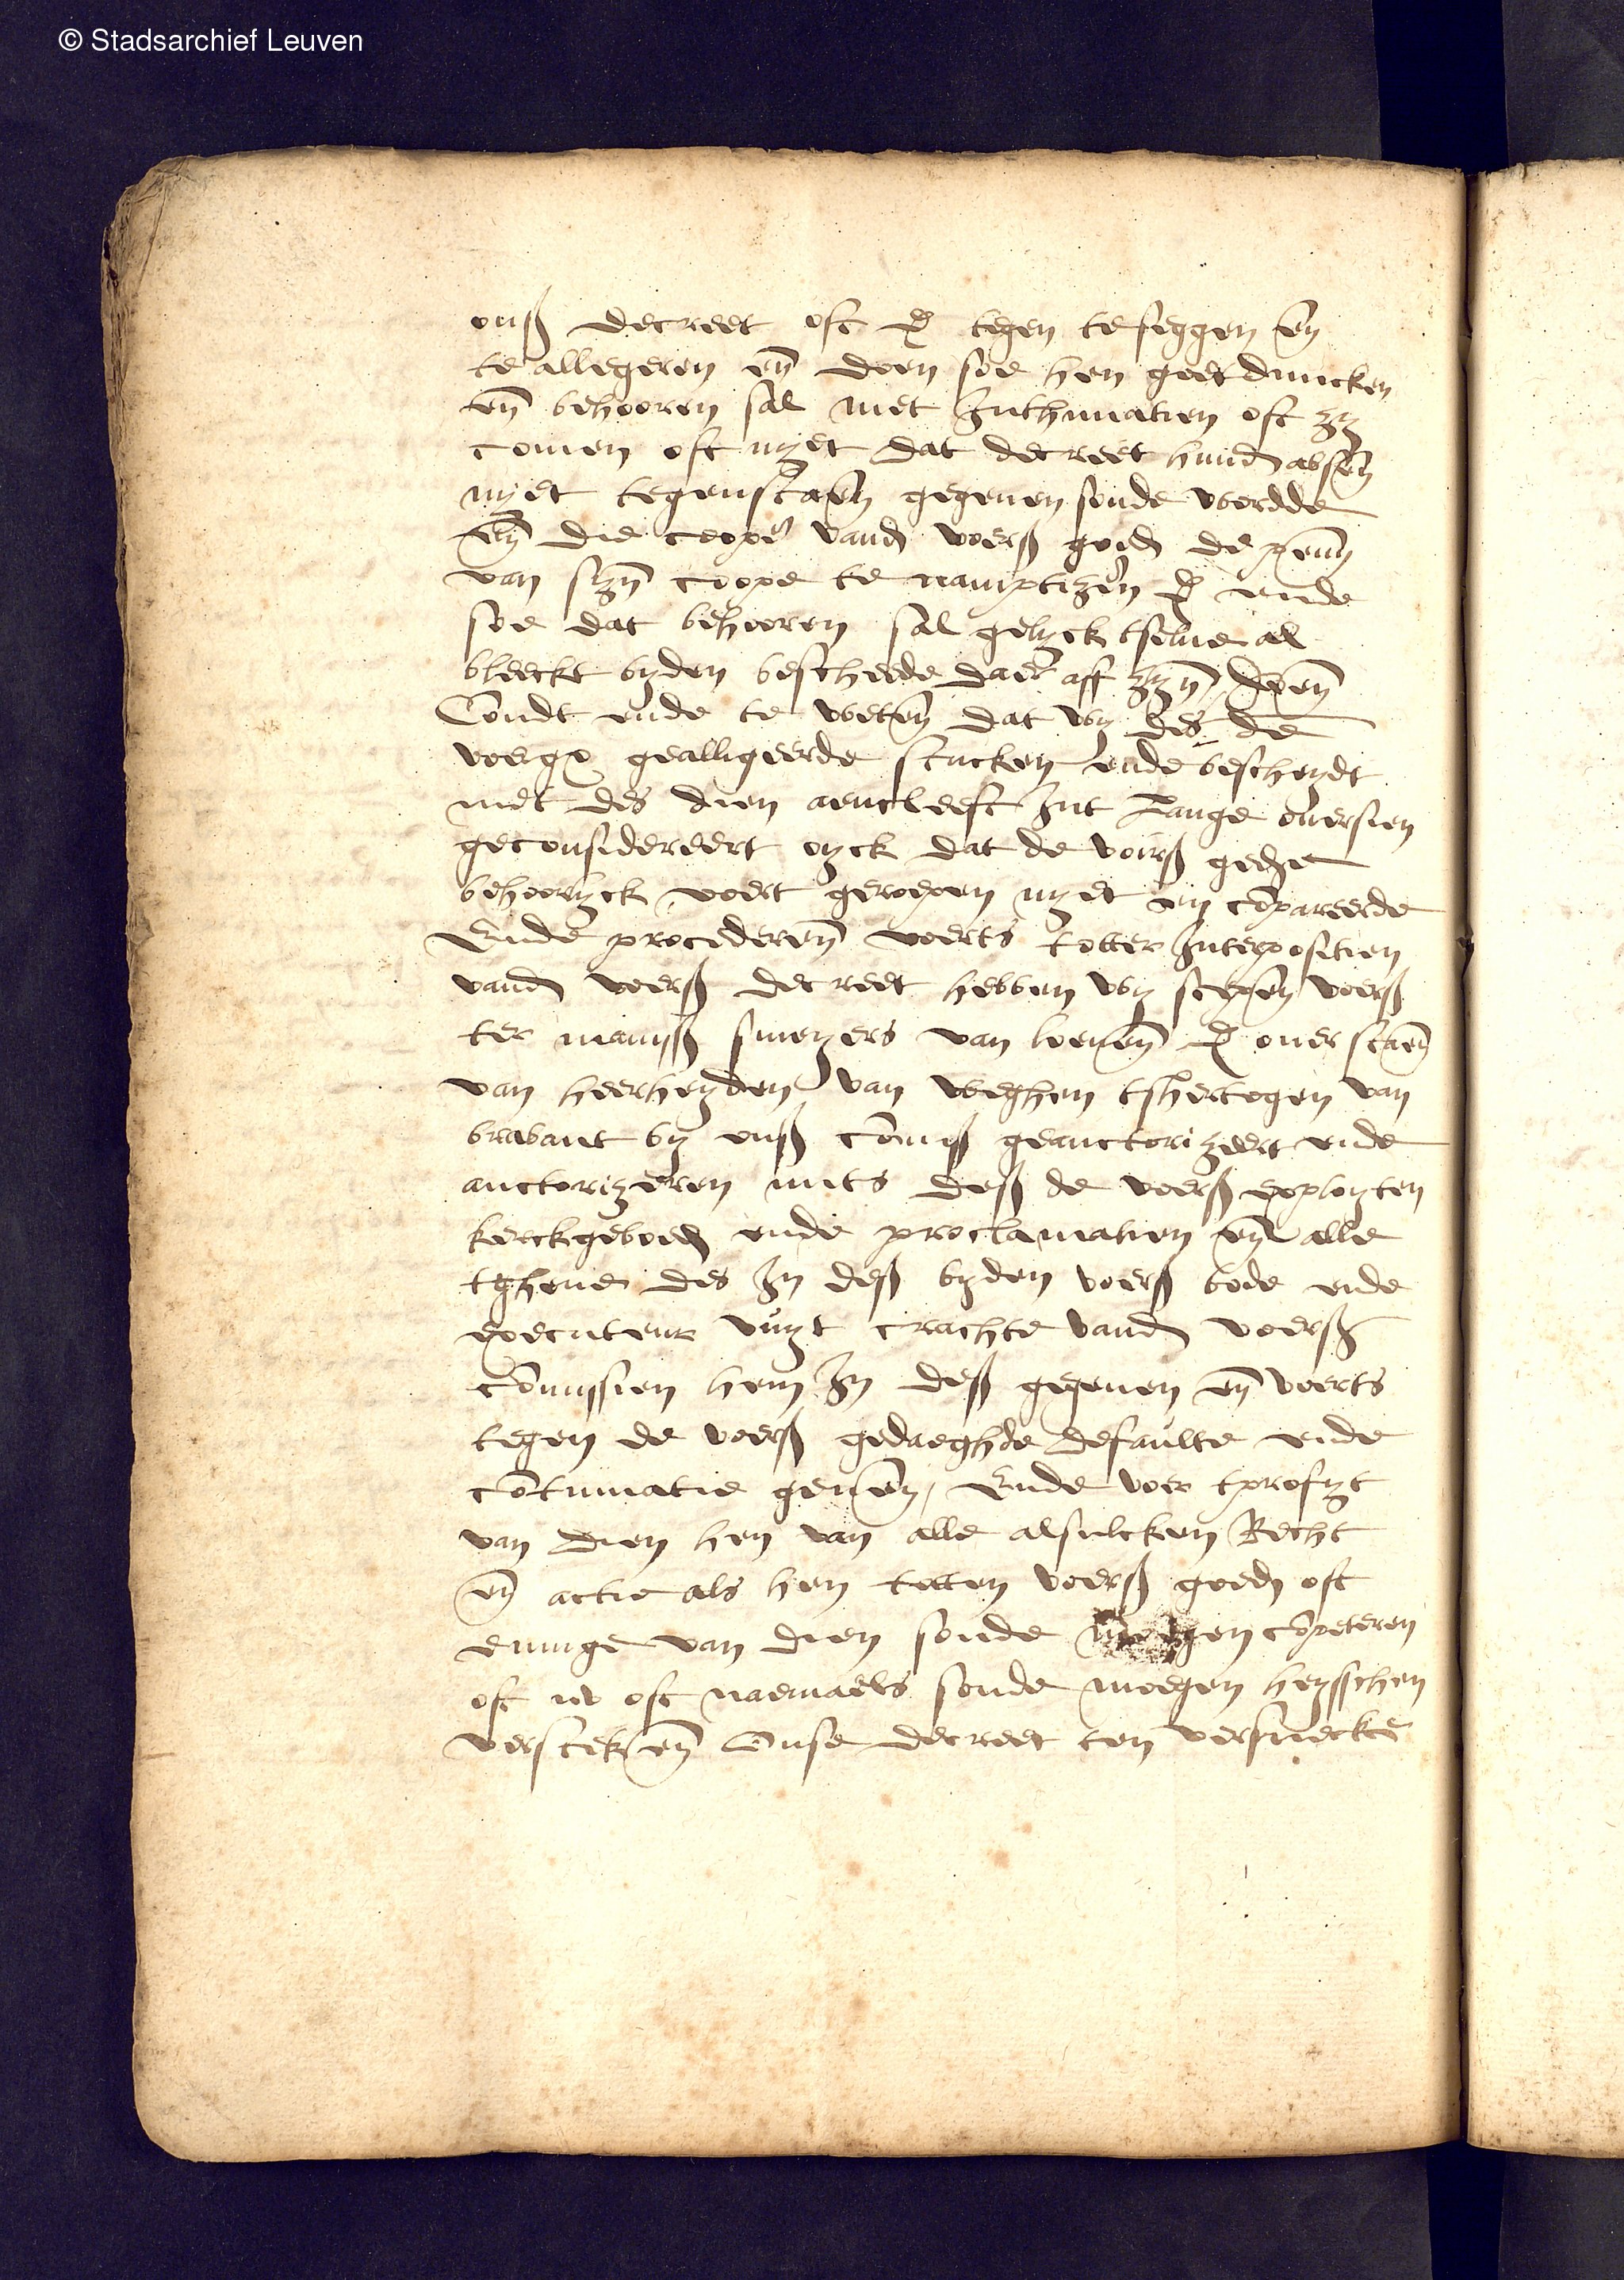 © Stadsarchief Leuven
onß decreet oft d tegen te seggen en
te allegeren en doen soe hen goet duncken
en behooren sal met Inthimatien oft zy
comen oft nyet dat decreet hund absen
nyet tegenstaen gegeven soude wordde
en die coope vand voerß goed de penn
van syn coope te namptizen d ende
soe dat behooren sal gelyck tselve al
bleeckt byden bescheede daer aff zyn doen
Condt ende te weten dat wy des de
voergen gealligeerde stucken ende bescheydt
met des dien aencleeft Int Lange oversien
geconsidereert oyck dat de voirß gede
behoorlyck voert geroepen nyet en compareerde
Ende procederen voerts totter Interpositien
vand voerß decreet hebben wy scepen voerß
ter manisß smeyers van loeven d over staen
van heerheyden van weghen tshertogen van
brabant by onß comisß geauctorizeert ende
auctorizeren mits deß de voerß exployten
kerckgeboed ende proclamatien en alle
tghene des In deß byden voerß bode ende
executeur vuyt crachte vand voerß
comissien hem In deß gegeven en voerts
tegen de voerß gedaeghde defaulte ende
contumatie geven, Ende voer tprofyt
van dien hen van alle alsulcken Recht
en actie als hen totten voerß goed oft
eenige van dien soude moegen competeren
oft nv oft naemaels soude moegen heysschen
verstek en Onse decreet ten versuecke